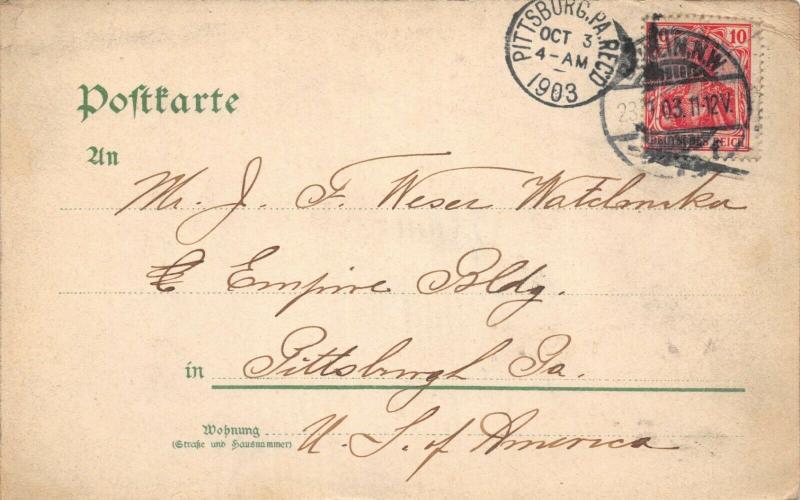 PITTSBURG, PA. REC'D
OCT 3
4-AM
1903
10
LIN. N.W.
11-12V.
DEUTSCHES REICH
Postkarte
An
Mr. J. F. Weser
Empire Bldg.
in Pittsburgh Pa.
Wohnung
(Straße und Hausnummer)
U. S. of America